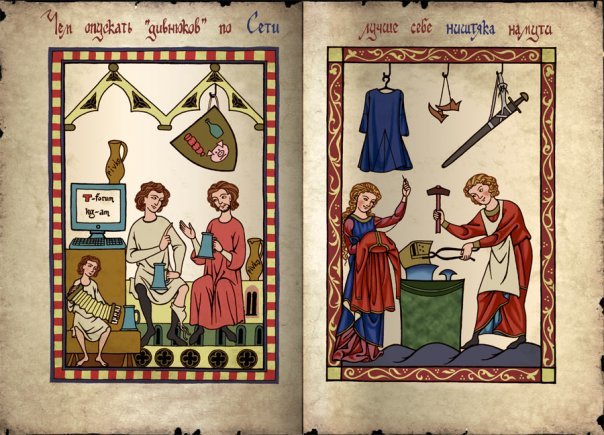 Чем опускать "дивнюков" по Сети
лучше себе ништяка намути
T-forum
kg-am